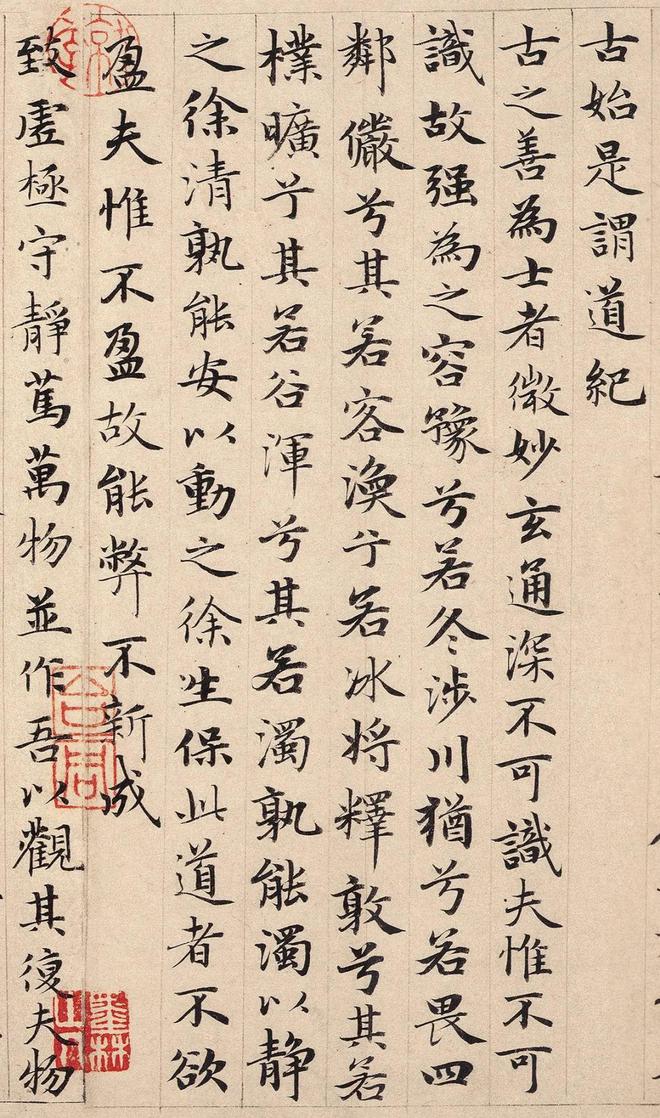 古始是謂道紀
古之善為士者微妙玄通深不可識夫惟不可
識故强為之容豫兮若冬涉川猶兮若畏四
鄰儼兮其若客渙兮若冰將釋敦兮其若
樸曠兮其若谷渾兮其若濁孰能濁以静
之徐清孰能安以動之徐生保此道者不欲
盈夫惟不盈故能弊不新成
致虛極守靜篤萬物並作吾以觀其復夫物